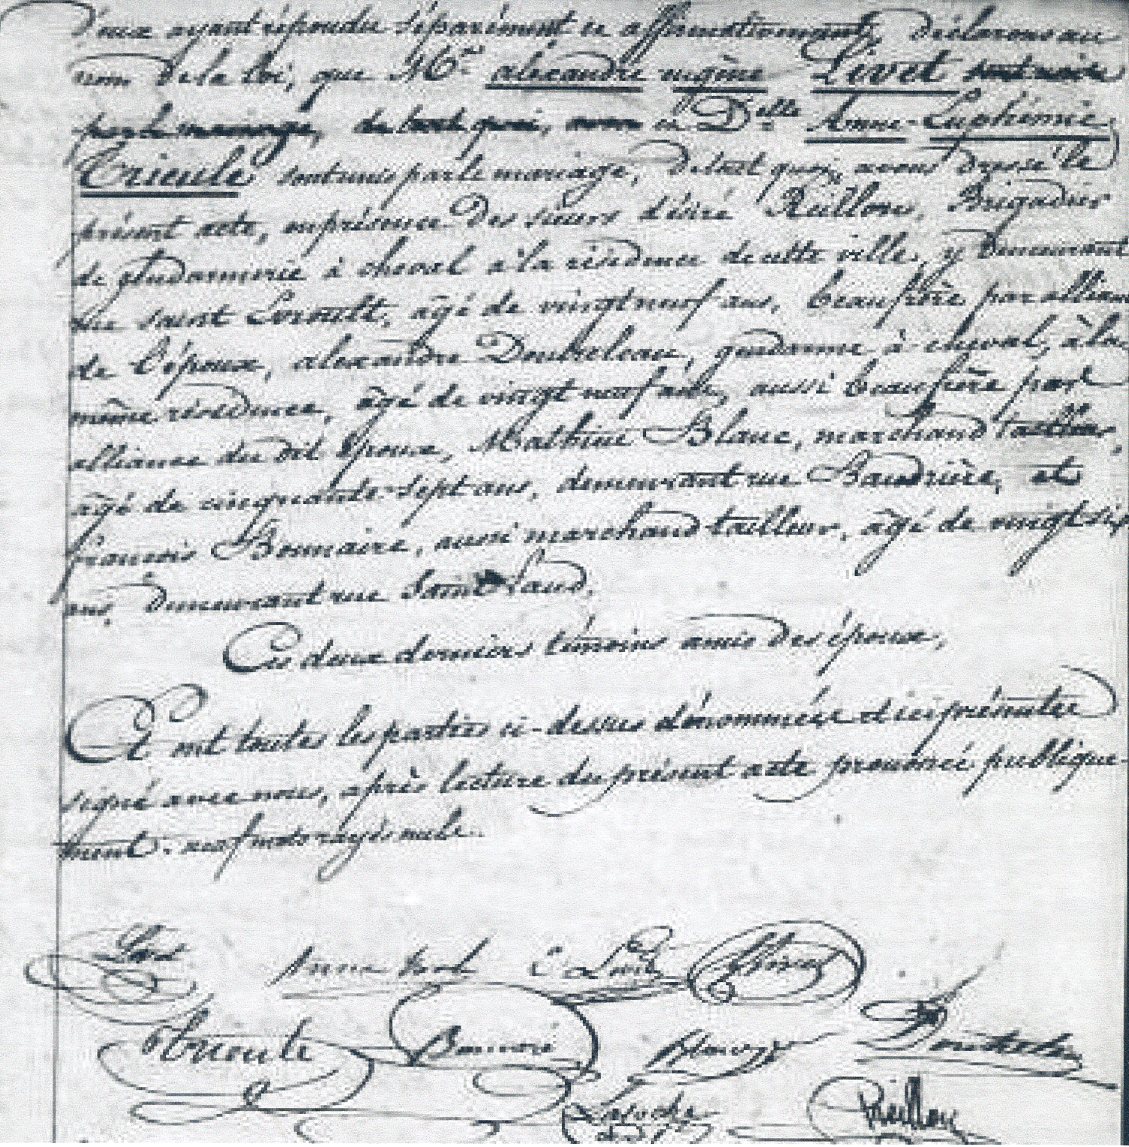 d'eux ayant répondu séparément et affirmativement, déclarons au
nom de la loi, que Mr. alexandre eugène Livet sont unis
par le mariage, de tout quoi, avons et Delle Anne-Euphémie
Trioule sont unis par le mariage, De tout quoi, avons dressé le
présent acte, en présence Des sieurs désiré Reillon, Brigadier
de gendarmerie à cheval à la résidence de cette ville, y Demeurant
rue saint âgé de vingt neuf ans, beau frère par allian
de l'époux, alexandre gendarme à cheval, à la
même résidence, âgé de vingt neuf ans, aussi beau frère par
alliance du dit époux, Mathieu Blanc, marchand tailleur,
âgé de cinquante-sept ans, demeurant rue Baudrière, et
françois Bonnaire, aussi marchand tailleur, âgé de vingt six
ans, Demeurant rue Saint Laud.
Ces deux derniers témoins amis des époux,
Et ont toutes les parties ci-dessus dénommées et ici présentes
signé avec nous, après lecture du présent acte prononcé publique-
ment. neuf mots rayés nuls.
Anne E Livet
Trioule Bonnaire
Reillon